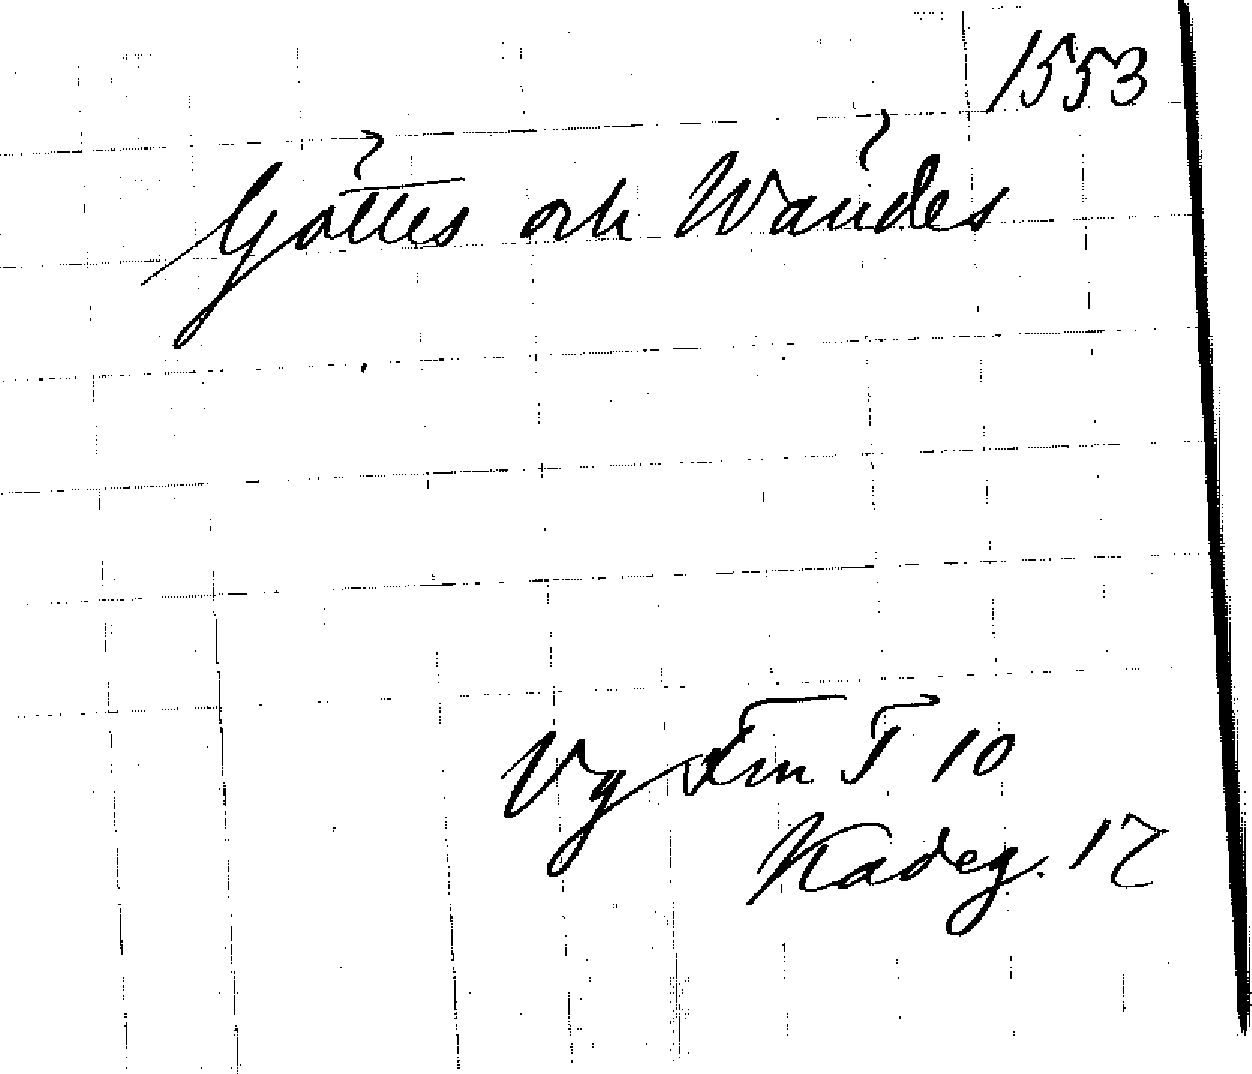 1553
Gattes och Waudes
Vg Fm I 10
Kadeg. 17